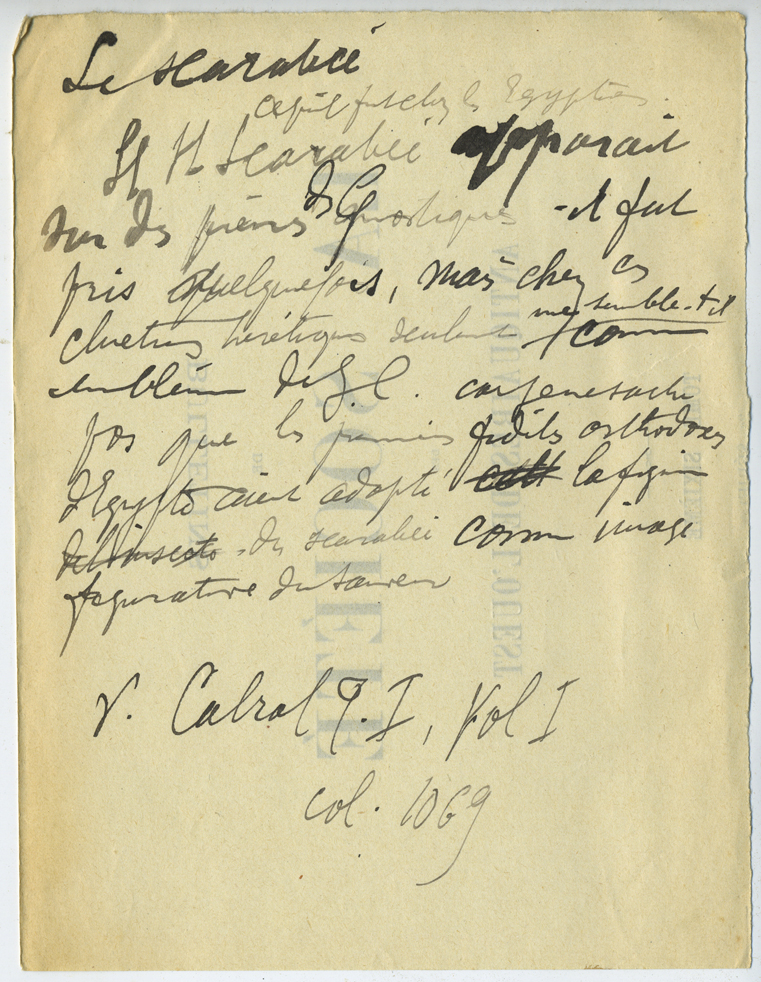 Le scarabée
ce qu'il fut chez les Egyptiens.
Le scarabée apparait
sur des pierres des Gnostiques - il fut
pris quelquefois, mais chez ces
chretiens héretiques seulement me semble-t-il
comme
emblème de J. C. car je ne sache
pas que les premiers fidèles orthodoxes
d'Egypte aient adopté cett la figure
de l'insecte - du scarabée comme image
figurative du sauveur
V. Cabrol T. I, Vol I
col. 1069
LA SOCIÉTÉ
ANTIQUAIRES DE L'OUEST
BULLETINS